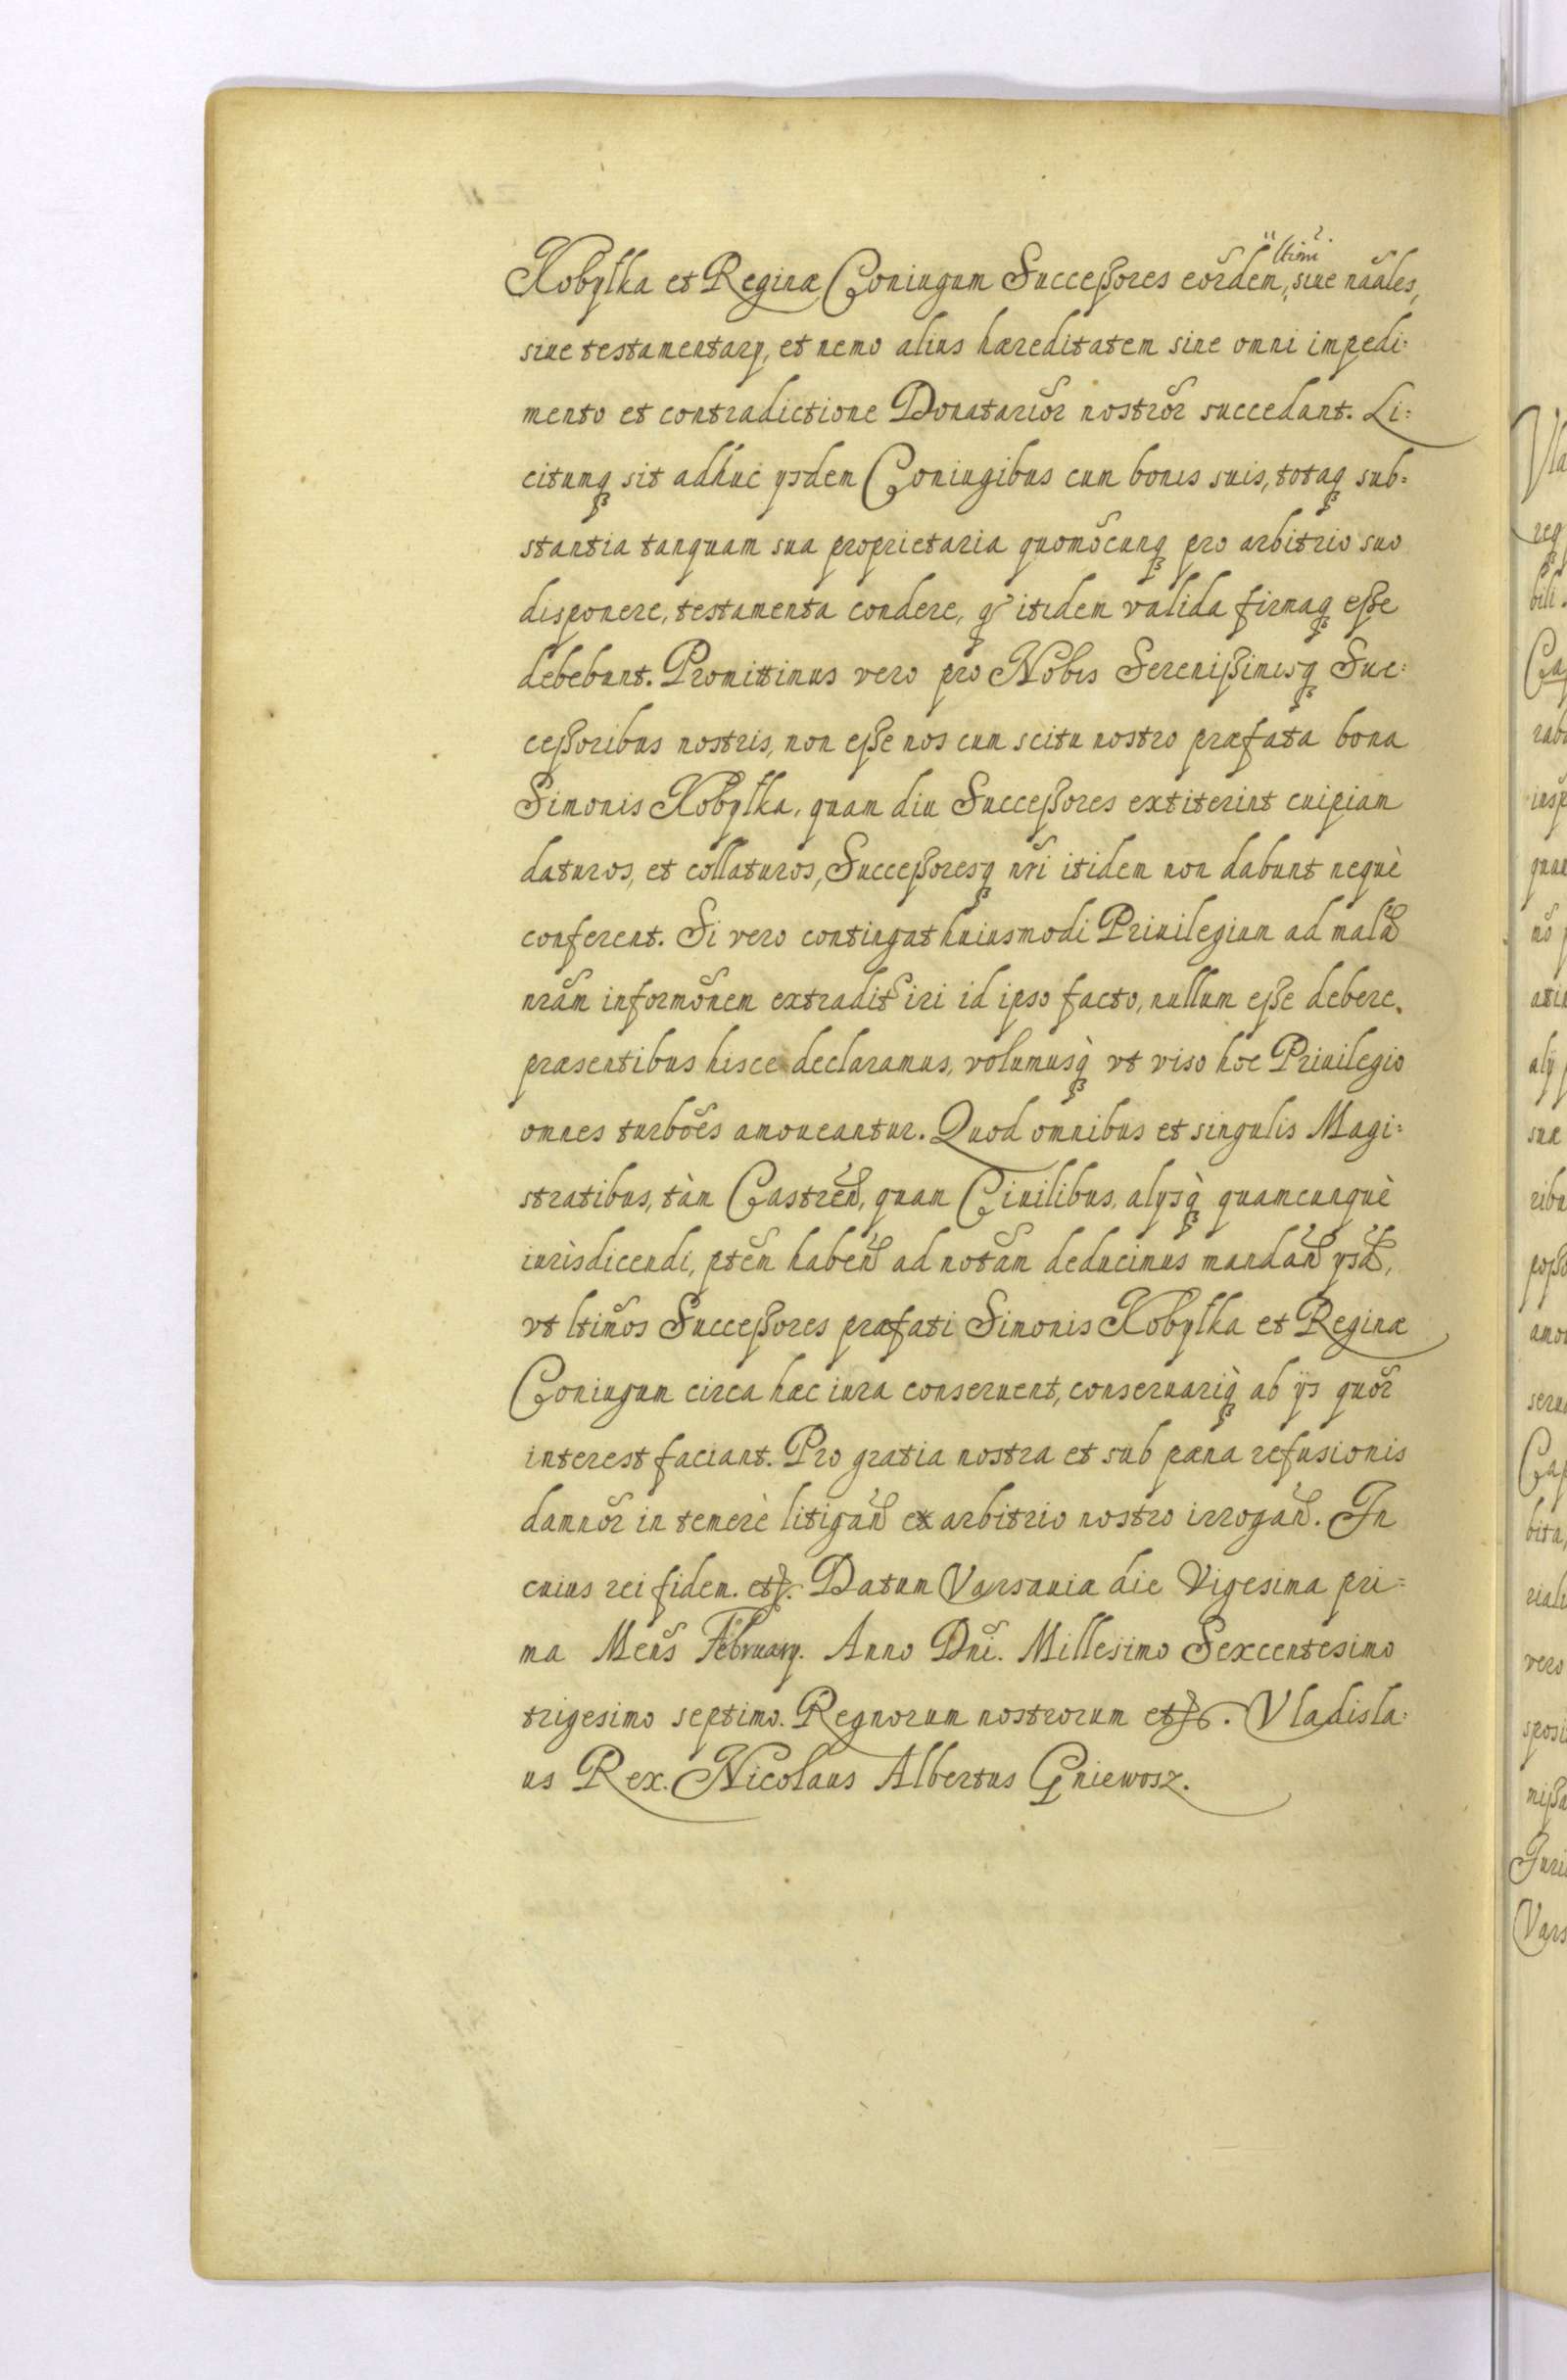 ltimi
Kobyłka et Reginæ Coniugum Succeßores eordem, siue nãales,
siue testamentarÿ, et nemo alius hæreditatem sine omni impedi:
mento et contradictione Donatariõr nostrõr succedant. Li:
citumq sit adhuc ysdem Coniugibus cum bonis suis, totaq sub:
stantia tanquam sua proprietaria quomõcunq pro arbitrio suo
disponere, testamenta condere, q itidem valida firmaq eße
debebunt. Promittimus vero pro Nobis Serenißimisq Suc:
ceßoribus nostris, non eße nos cum scitu nostro præfata bona
Simonis Kobyłka, quam diu Succeßores extiterint cuipiam
daturos, et collaturos, Succeßoresq nri itidem non dabunt nequè
conferent. Si vero contingat huiusmodi Priuilegium ad malã
nrãm informõnem extradit iri id ipso facto, nullum eße debere,
præsentibus hisce declaramus, volumusq̀ vt viso hoc Priuilegio
omnes turbões amoueantur. Quod omnibus et singulis Magi:
stratibus, tàm Castreñ, quam Ciuilibus, alysq̀ quamcunquè
iurisdicendi, ptẽm habeñ ad notãm deducimus mandañ ysd,
vt ltimõs Succeßores præfati Simonis Kobyłka et Reginæ
Coniugum circa hæc iura conseruent, conseruariq̀ ab ijs quõr
interest faciant. Pro gratia nostra et sub pæna refusionis
damnõr in temerè litigañ ex arbitrio nostro irrogañ. In
cuius rei fidem. etc. Datum Varsauiæ die Vigesima pri=
ma Mens̃ Februarÿ. Anno Dni. Millesimo Sexcentesimo
trigesimo septimo. Regnorum nostrorum etc. Vladisla:
us Rex. Nicolaus Albertus Gniewosz.